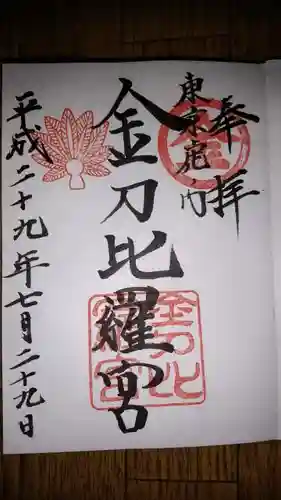 奉拝
東京虎ノ門
金刀比羅宮
平成二十九年七月二十九日